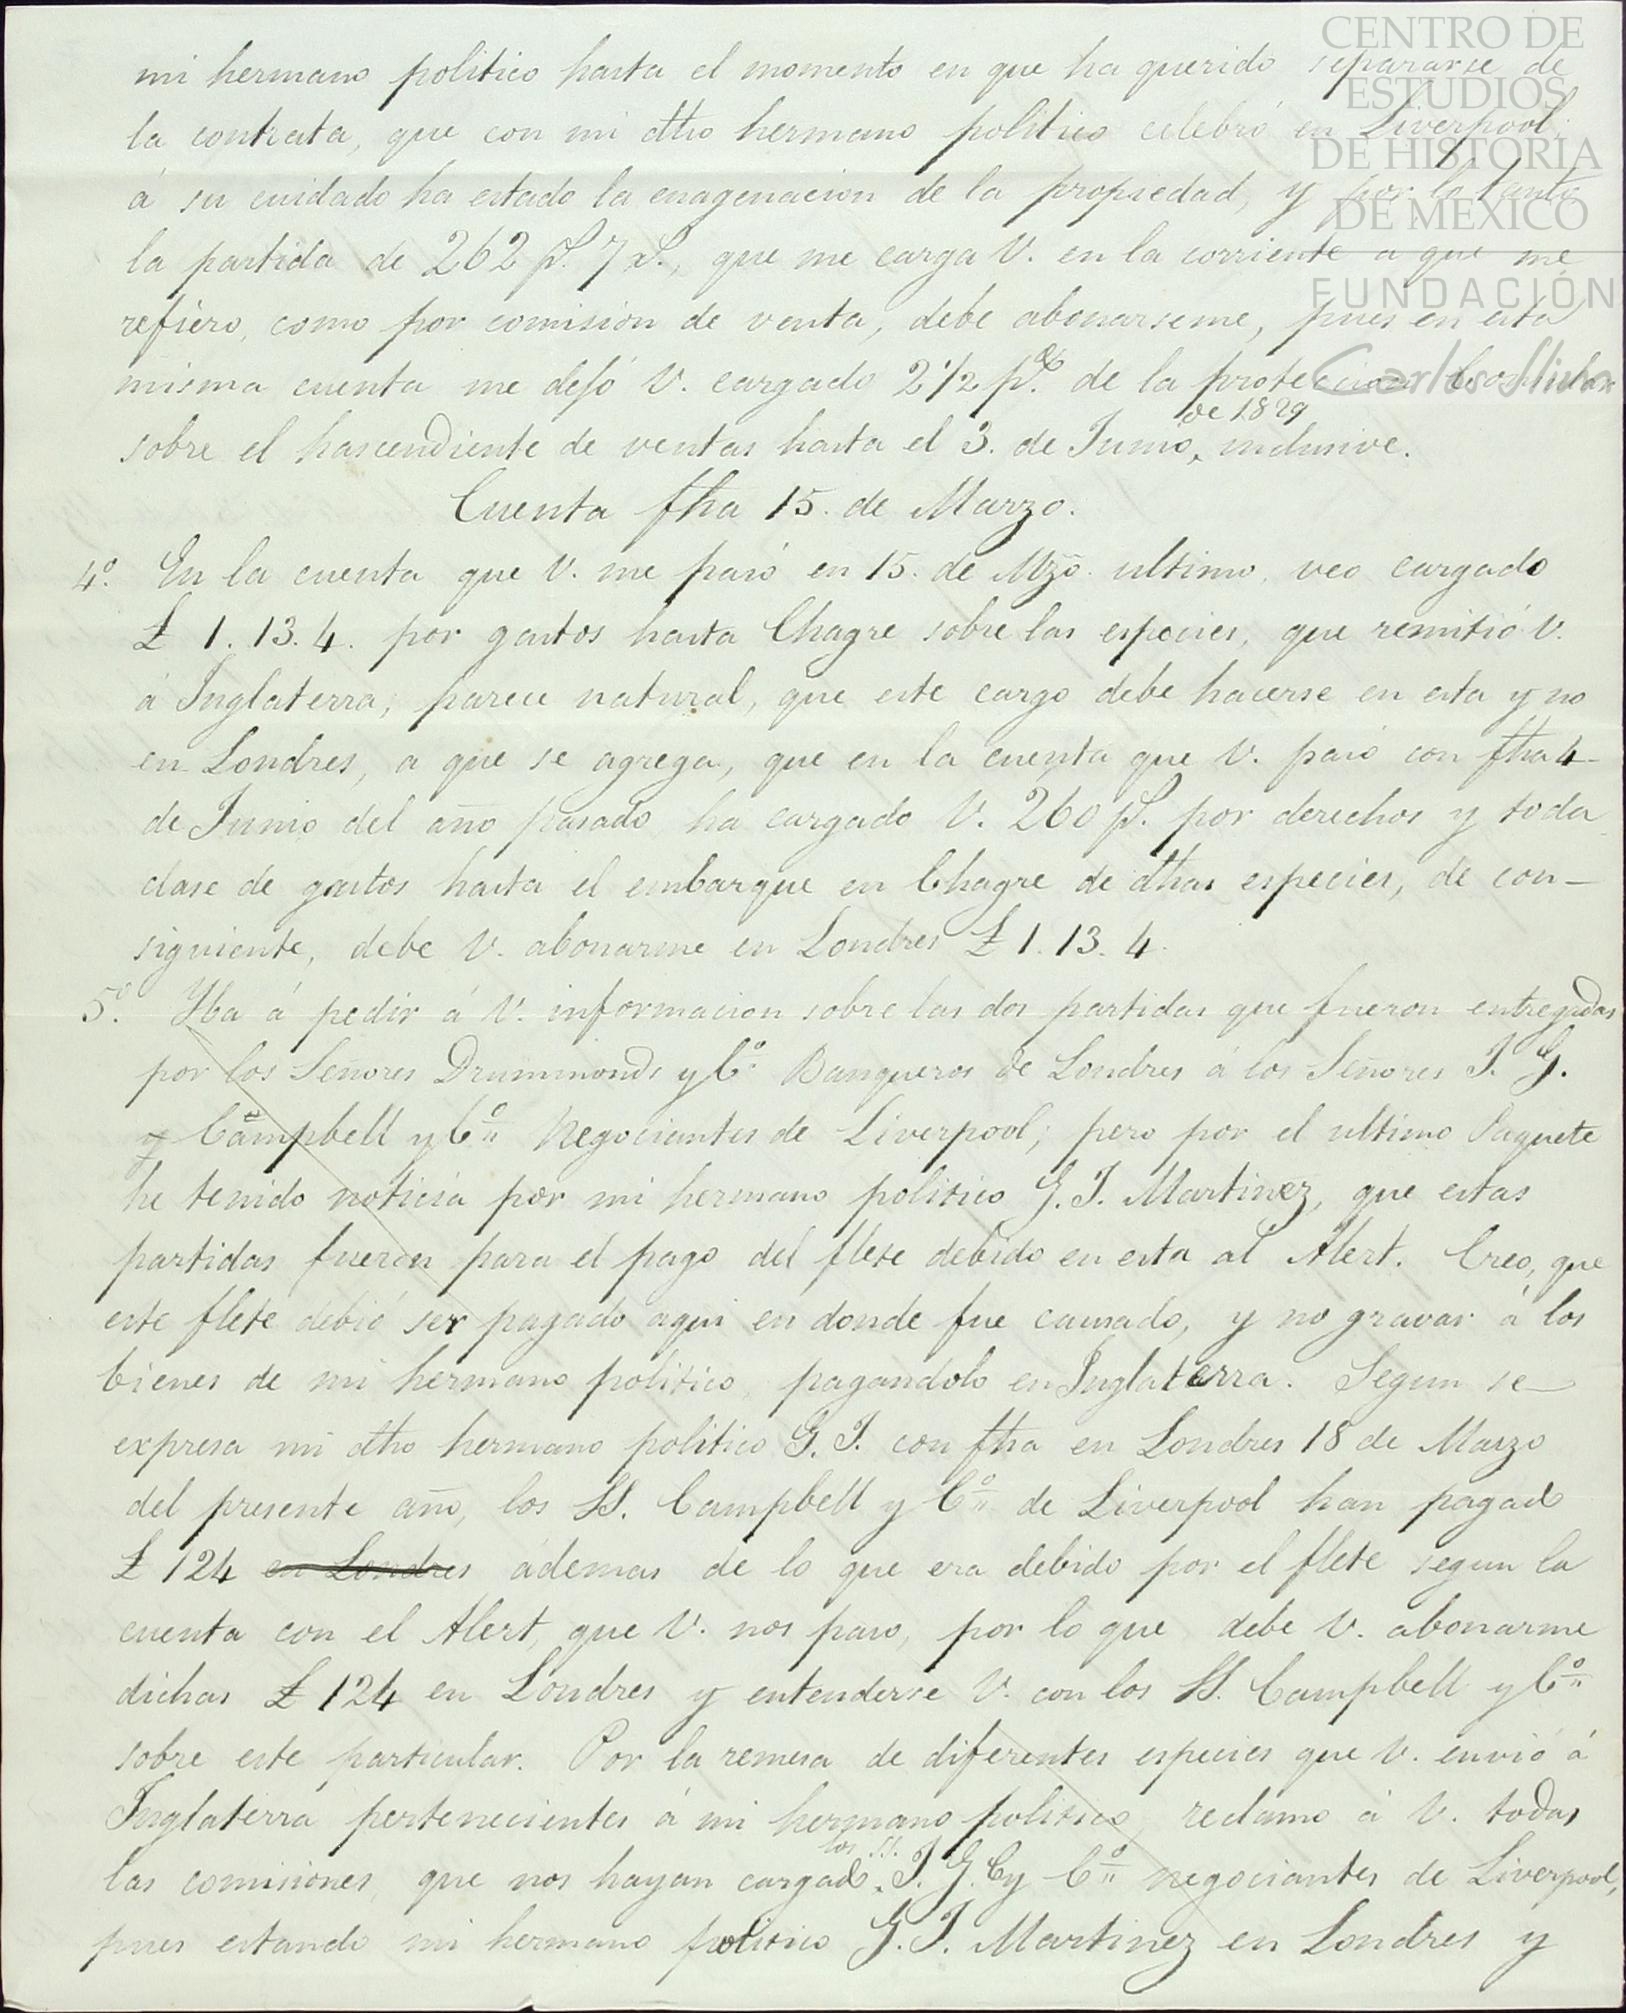 CENTRO DE
ESTUDIOS
DE HISTORIA
DE MEXICO
FUNDACIÓN
Carlos Slim
mi hermano politico hasta el momento en que ha querido separarse de
la contrata, que con mi dtho hermano politico celebró en Liverpool,
á su cuidado ha estado la enagenacion de la propiedad, y por lo tanto
la partida de 262 p.s 7 r.s, que me carga V. en la corriente a que me
refiero, como por comision de venta, debe abonarseme, pues en esta
misma cuenta me dejó V. cargado 2 1/2 p.% de la
de 1829
sobre el hascendiente de ventas hasta el 3. de Junio, inclusive.
Cuenta fha 15. de Marzo.
4º. En la cuenta que V. me pasó en 15. de Mzo. ultimo, veo cargado
£ 1. 13. 4. por gastos hasta Chagre sobre las especies, que remitió V.
á Inglaterra, parece natural, que este cargo debe hacerse en esta y no
en Londres, a que se agrega, que en la cuenta que V. pasó con fha 4
de Junio del año pasado ha cargado V. 260 p.s por derechos y toda
clase de gastos hasta el embarque en Chagre de dthas especies, de con-
siguiente, debe V. abonarme en Londres £ 1. 13. 4.
5º. Yba á pedir á V. informacion sobre las dos partidas que fueron entregadas
por los Señores Drummonds y Cº Banqueros de Londres á los Señores J. G.
y Campbell y Cº Negociantes de Liverpool; pero por el ultimo Paquete
he tenido noticia por mi hermano politico G. J. Martinez, que estas
partidas fueron para el pago del flete debido en esta al Alert. Creo, que
este flete debió ser pagado aqui en donde fue causado, y no gravar á los
bienes de mi hermano politico, pagandolo en Inglaterra. Segun se
expresa mi dtho hermano politico G. J. con fha en Londres 18 de Marzo
del presente año, los SS. Campbell y Cº de Liverpool han pagado
£ 124 en Londres ádemas de lo que era debido por el flete segun la
cuenta con el Alert, que V. nos paso, por lo que debe V. abonarme
dichas £ 124 en Londres y entenderse V. con los SS. Campbell y Cº
sobre este particular. Por la remesa de diferentes especies que V. envió á
Inglaterra pertenecientes á mi hermano politico, reclamo á V. todas
los SS.
las comisiones, que nos hayan cargado J. G. C y Cº negociantes de Liverpool,
pues estando mi hermano politico G. J. Martinez en Londres y